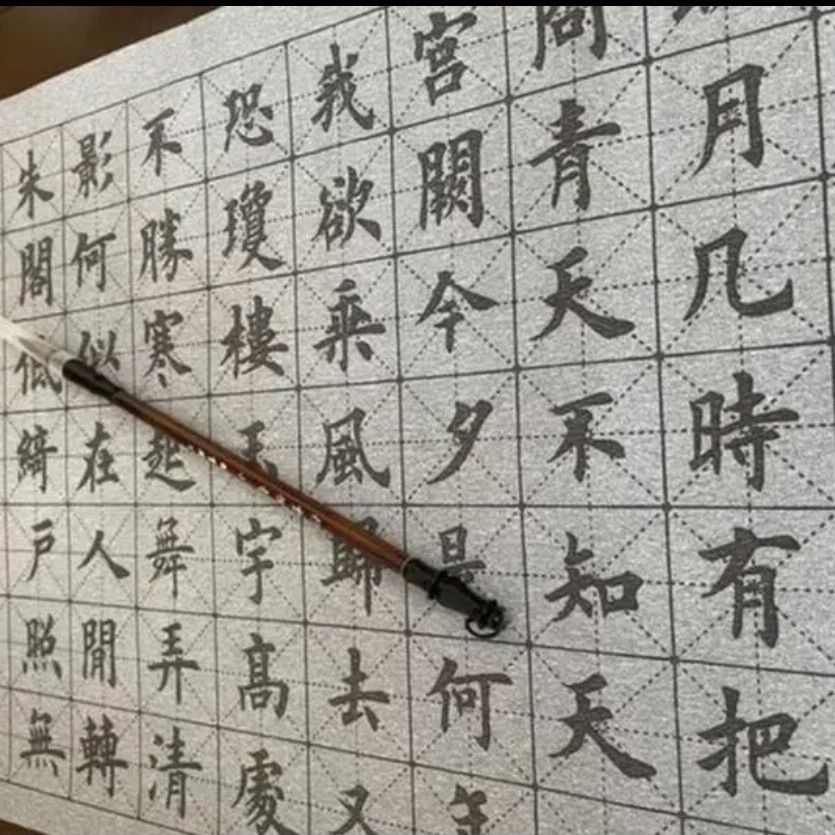 月几時有把
問青天不知天
宮闕今夕是何年
我欲乗風歸去又
恐瓊樓玉宇髙處
不勝寒起舞弄清
影何似在人間轉
朱閣低綺戶照無